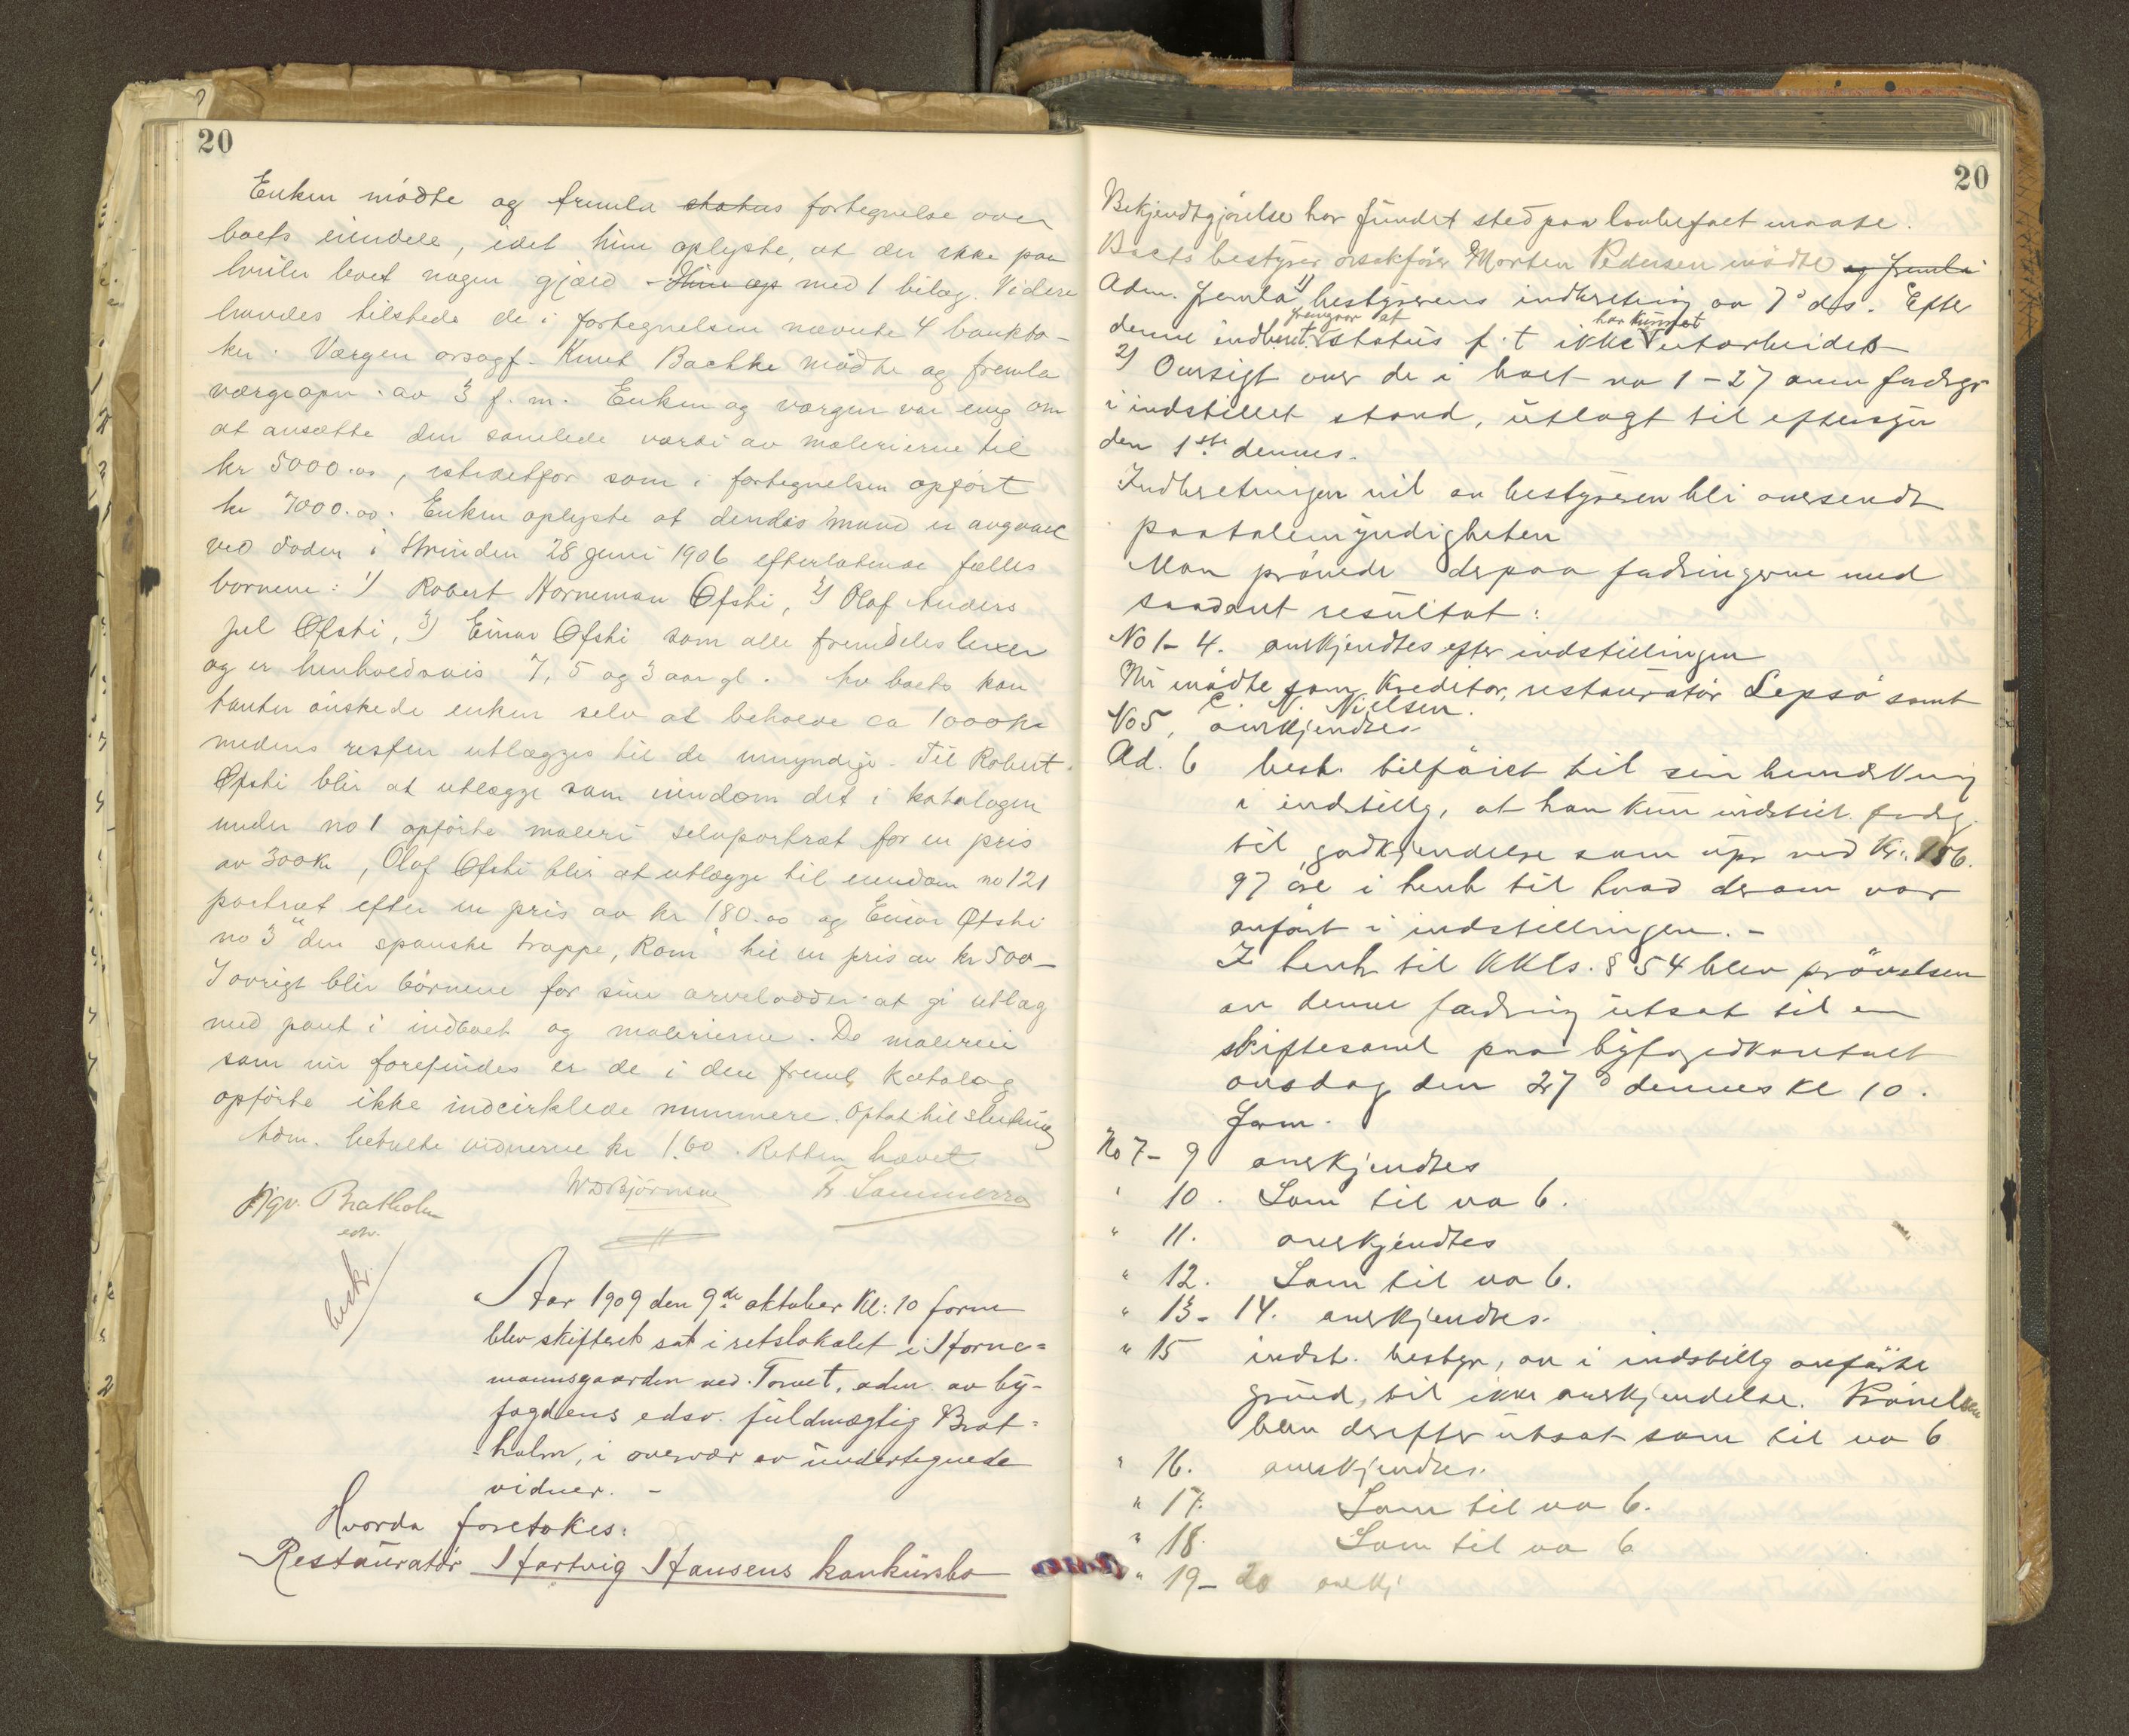 20
Enken mødte og fremla status fortegnelse over
boets eiendele, idet hun oplyste, at der ikke paa
hviler boet nogen gjæld. Hun op med 1 bilag. Videre
havdes tilstede de i fortegnelsen nævnte 4 bankbø-
ker. Værgen orsagf. Knut Bachke mødte og fremla
værgeopn. av 3 f. m. Enken og værgen var enig om
at ansætte den samlede værdi av malerierne til
kr 5000.00, istedetfor som i fortegnelsen opført
kr 7000.00. Enken oplyste at dendes mand er avgaaet
ved døden i Strinden 28 juni 1906 efterlatende fælles
børnene: 1) Robert Horneman Øfsti, 2) Olaf Anders
Juel Øfsti, 3) Einar Øfsti som alle fremdeles lever
og er henholdsvis 7, 5 og 3 aar gl. Av boets kon
tanter ønskede enken selv at beholde ca 1000 kr
medens resten utlægges til de umyndige. Til Robert
Øfsti blir at utlægge som eiendom det i katalogen
under no 1 opførte maleri selvportræt for en pris
av 300 kr, Olaf Øfsti blir at utlægge til eiendom no 121
portræt efter en pris av kr 180.00 og Einar Øfsti
no 3 "den spanske trappe, Rom" til en pris av kr 500 -
I øvrigt blir børnene for sine arvelodder at gi utlæg
med pant i indboet og malerierne. De malerier
som nu forefindes er de i den freml. katalog
opførte ikke indcirklede nummere. Optat til slutning
Adm. betalte vidnerne kr 1.60. Retten hævet
Sigv. Bratholm W D Bjørnsen Fr Sommerro
edsv.
beskr.
Aar 1909 den 9de oktober Kl: 10 form
blev skifteret sat i retslokalet i Horne=
mannsgaarden ved Torvet, adm. av by-
fogdens edsv. fuldmægtig Brat=
holm, i overvær av undertegnede
vidner. -
Hvorda foretokes:
Restauratør Hartvig Hansens konkursbo
20
Bekjendtgjørelse har fundet sted paa lovbefalt maate.
Boets bestyrer orsakfører Morten Pedersen mødte og fremla
Adm. fremla 1) bestyrerens indberetning av 7d ds. Efter
fremgaar at har kunnet
denne indberet. status f. t ikke utarbeides
2) Oversigt over de i boet no 1-27 anm fordrgr
i indstillet stand, utlagt til eftersyn
den 1ste dennes.
Indberetningen vil av bestyreren bli oversendt
paatalemyndigheten
Man prøvede derpaa fordringerne med
saadant resultat:
No 1- 4. anerkjendtes efter indstillingen
Nu mødte som kreditor, restauratør Lepsø samt
C. N. Nielsen.
No 5, anerkjendtes.
Ad. 6 best. tilføiet til sin bemerkning
i indstillg, at han kun indstil. fordg.
til godkjendelse som upr med Kr. 156.
97 øre i henh til hvad derom var
anført i indstillingen. -
I henh til KKls. § 54 blev prøvelsen
av denne fordring utsat til en
skiftesaml paa byfogedkontoret
onsdag den 27d dennes kl 10.
form.
No 7- 9 anerkjendtes
" 10. Som til no 6.
" 11. anerkjendtes
" 12. Som til no 6.
" 13- 14. anerkjendtes.
" 15 indst. bestyr, av i indstillg anførte
grund, til ikke anerkjendelse. Prøvelsen
blev derefter utsat som til no 6
" 16. anerkjendtes.
" 17. Som til no 6.
" 18. Som til no 6
" 19- 20 anerkj